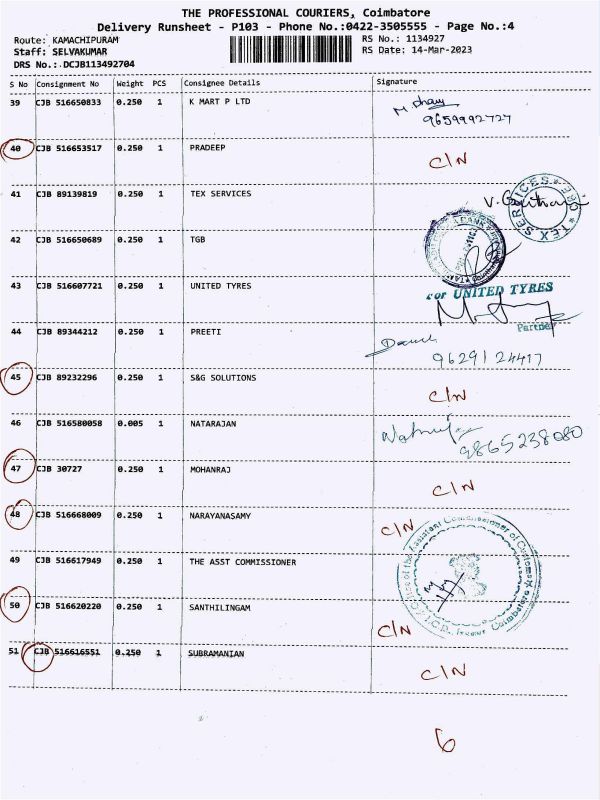 THE PROFESSIONAL COURIERS, Coimbatore
Delivery Runsheet - P103 - Phone No.:0422-3505555 - Page No.:4
Route: KAMACHIPURAM RS No.: 1134927
Staff: SELVAKUMAR RS Date: 14-Mar-2023
DRS No.:.DCJB113492704
S No Consignment No Weight PCS Consignee Details Signature
39 CJB 516650833 0.250 1 K MART P LTD
9659992727
40 CJB 516653517 0.250 1 PRADEEP C/N
41 CJB 89139819 0.250 1 TEX SERVICES TEX SERVICES
42 CJB 516650689 0.250 1 TGB
43 CJB 516607721 0.250 1 UNITED TYRES For UNITED TYRES
Partner
44 CJB 89344212 0.250 1 PREETI
9629124417
45 CJB 89232296 0.250 1 S&G SOLUTIONS C/N
46 CJB 516580058 0.005 1 NATARAJAN
9865238080
47 CJB 30727 0.250 1 MOHANRAJ C/N
48 CJB 516668009 0.250 1 NARAYANASAMY C/N
49 CJB 516617949 0.250 1 THE ASST COMMISSIONER Office of the Assistant Commissioner of Customs Coimbatore
50 CJB 516620220 0.250 1 SANTHILINGAM C/N
51 CJB 516616551 0.250 1 SUBRAMANIAN C/N
6